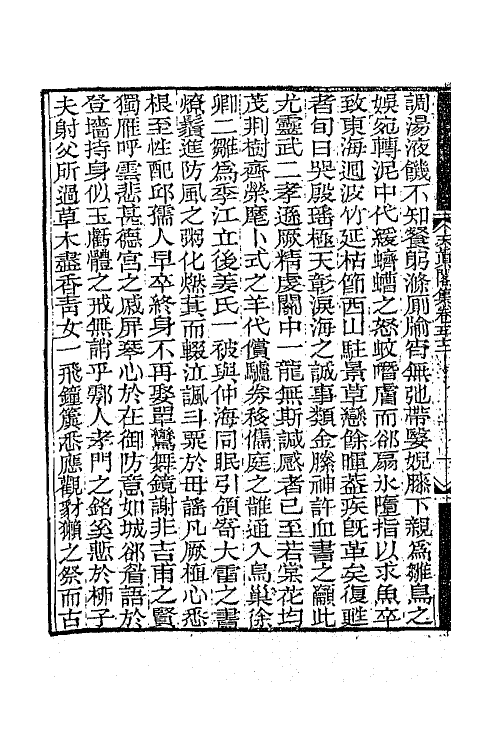 調湯液饑不知餐躬滌廁牏宵無弛帶嫛婗膝下親爲雛鳥之
娛宛轉泥中代緩蠐螬之怒蚊噆膚而卻扇氷墮指以求魚卒
致東海迴波竹延枯節西山駐景草戀餘暉葢疾旣革矣復甦
者旬日哭殷璠極天彰淚海之誠事類金縢神許血書之籲此
尤靈武二孝遜厥精虔關中一龍無斯誠感者已至若棠花均
茂荆樹齊榮麾卜式之羊代償驢券移儁庭之雝通入鳥巢徐
卿二雛爲季江立後姜氏一被與仲海同眠引領寄大雷之書
燎鬚進防風之粥化燃萁而輟泣諷斗粟於毋謠凡厥植心悉
根至性配邱孺人早卒終身不再娶單鸞舞鏡謝非吉甫之賢
獨雁呼雲悲甚德宮之戚屏琴心於在御防意如城卻眢語於
登墻持身似玉虧體之戒無誚乎鄹人孝門之銘奚慙於柳子
夫射父所過草木盡香靑女一飛鐘簴悉應觀豺獺之祭而古
天眞閣集卷五十二